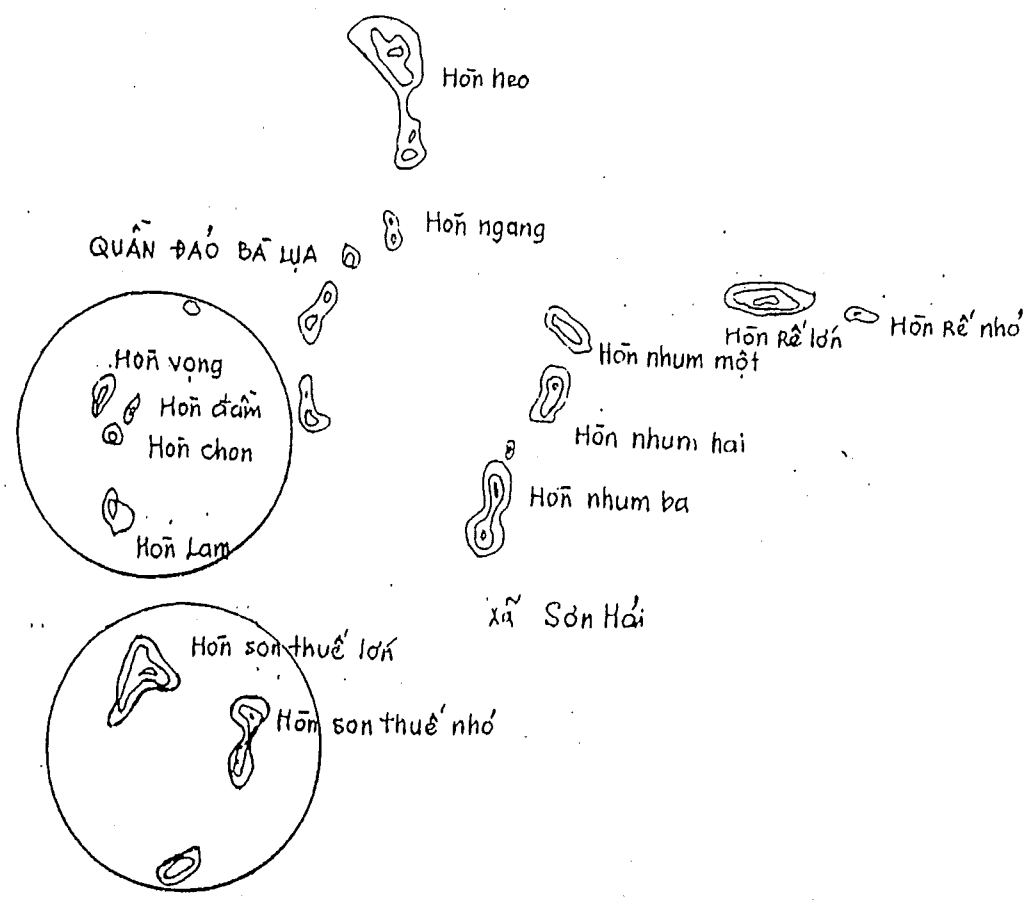 Hòn heo
Hòn ngang
QUẦN ĐẢO BÀ LỤA
Hòn Rế lớn
Hòn Rế nhỏ
Hòn nhum một
Hòn vọng
Hòn đầm
Hòn chon
Hòn nhum hai
Hòn nhum ba
Hòn Lam
xã Sơn Hải
Hòn son thuế lớn
Hòn son thuế nhỏ